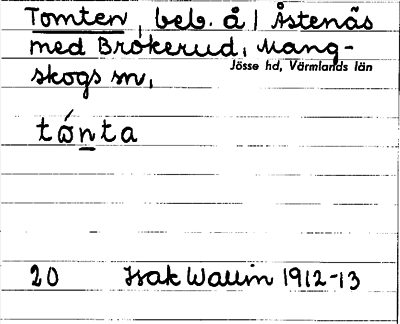 Tomten, beb. å Åstenäs
med Brokerud, Mang-
skogs sn,
Jösse hd, Värmlands län
tɷ́n̲ta
20 Isak Wallin 1912-13